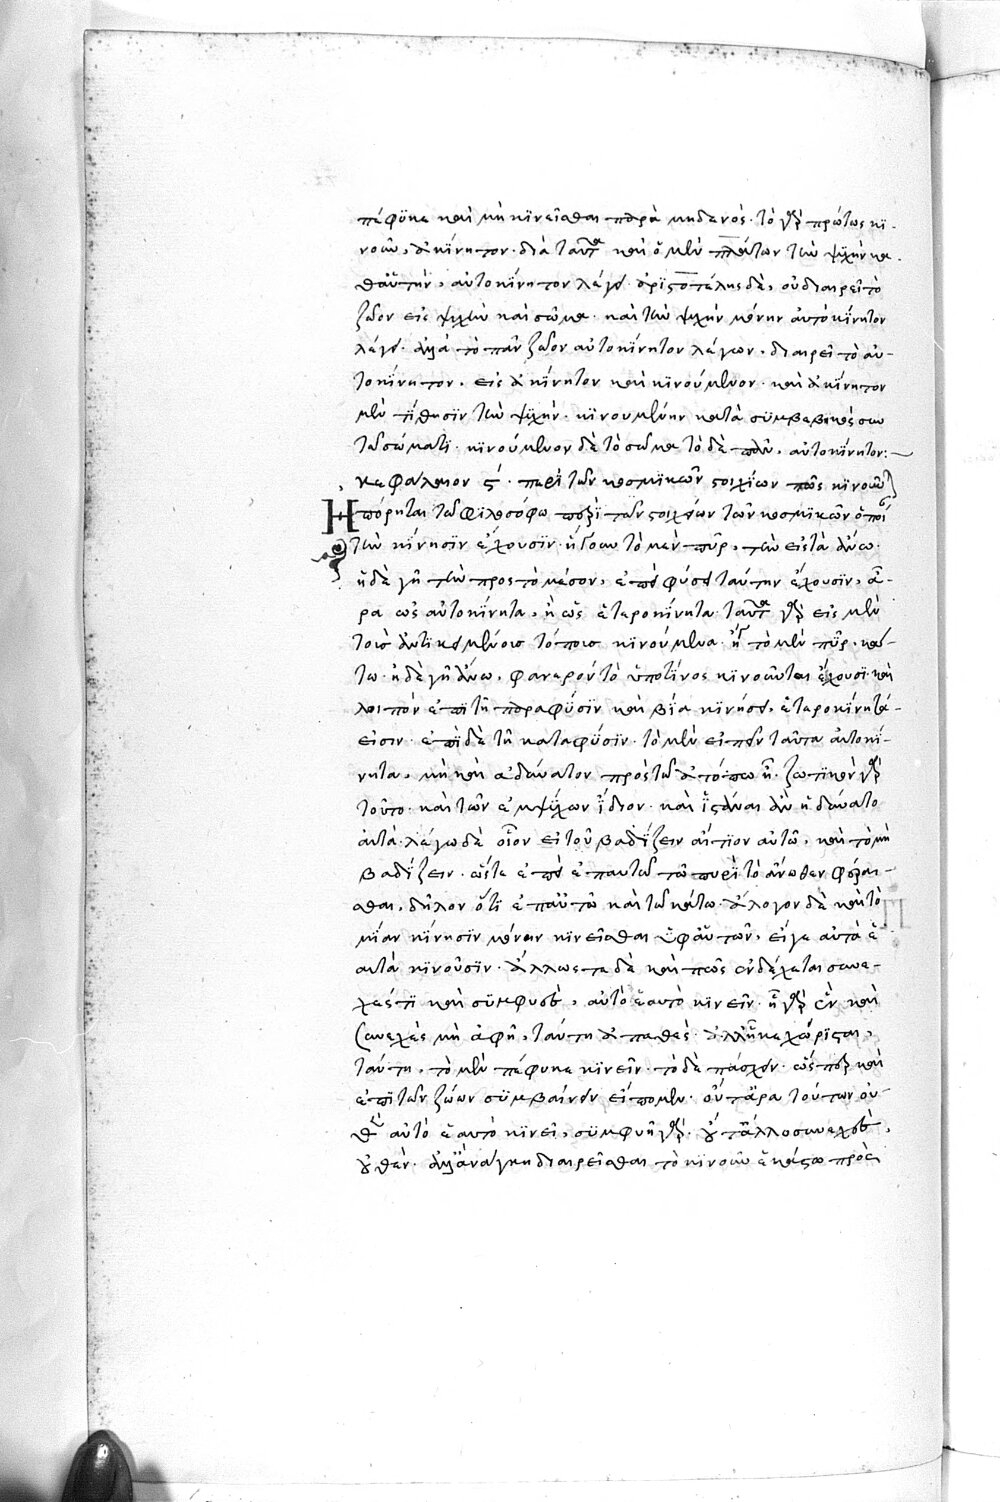 πέφυκε καὶ μὴ κινεῖσθαι παρὰ μηδενός· τὸ γὰρ πρώτως κι-
νοῦν, ἀκίνητον· διὰ ταῦτα καὶ ὁ μὲν πλάτων τὴν ψυχὴν κα-
θαὑτήν, αὐτοκίνητον λέγει· ἀριστοτέλης δὲ, οὐ διαιρεῖ τὸ
ζῶον εἰς ψυχὴν καὶ σῶμα· καὶ τὴν ψυχὴν μόνην αὐτοκίνητον
λέγει· ἀλλὰ τὸ πᾶν ζῶον αὐτοκίνητον λέγων, διαιρεῖ τὸ αὐ-
τοκίνητον, εἰς ἀκίνητον καὶ κινούμενον· καὶ ἀκίνητον
μὲν τίθησιν τὴν ψυχήν· κινουμένην κατὰ συμβεβηκὸς συν
τῶ σώματι· κινούμενον δὲ τὸ σῶμα τὸ δὲ πᾶν, αὐτοκίνητον:
κεφάλαιον ς· περὶ τῶν κοσμικῶν στοιχείων πῶς κινοῦνται
Ἠπόρηται τῶ φιλοσόφω περὶ τῶν στοιχείων τῶν κοσμικῶν ὁποί
τὴν κίνησιν ἔχουσιν· ἤγουν τὸ μὲν πῦρ, τὴν εἰς τὰ ἄνω·
ἡ δὲ γῆ τὴν πρὸς τὸ μέσον, ἐπεὶ φύσει ταύτην ἔχουσιν, ἆ-
ρα ὡς αὐτοκίνητα, ἢ ὡς ἑτεροκίνητα· ταῦτα γὰρ εἰς μὲν
τοὺς ἀντικειμένους τόπους κινούμενα· ἤγουν τὸ μὲν πῦρ, κά-
τω· ἡ δὲ γῆ ἄνω, φανερὸν τὸ ὑπο τίνος κινοῦνται ἔχουσι· καὶ
λοιπὸν ἐπὶ τῆ παραφύσιν καὶ βία κινήσει, ἑτεροκίνητά-
εἰσιν· ἐπὶ δὲ τῆ καταφύσιν· τὸ μὲν εἰπεῖν ταῦτα αὐτοκί-
νητα, μὴ καὶ ἀδύνατον πρὸς τῶ ἀτόπω ἦ· ζωτικὸν γὰρ
τοῦτο· καὶ τῶν ἐμψύχων ἴδιον· καὶ ἱστάναι ἂν ἠδύνατο
αὐτά· λέγω δὲ οἷον εἰ τοῦ βαδίζειν αἴτιον αὐτῶ, καὶ τὸ μὴ
βαδίζειν· ὥστε ἐπεὶ ἐπαυτῶ τῶ πυρὶ τὸ ἄνωθεν φέρεσ-
θαι, δῆλον ὅτι ἐπαὐτῶ καὶ τὸ κάτω· ἄλογον δὲ καὶ τὸ
μίαν κίνησιν μόνην κινεῖσθαι ὑφαὑτῶν, εἴγε αὐτὰ ἑ
αυτὰ κινοῦσιν· ἄλλως τε δὲ καὶ πῶς ἐνδέχεται συνε-
χές τι καὶ συμφυὲς, αὐτὸ ἑαυτὸ κινεῖν· ἧ γὰρ ἓν καὶ
συνεχὲς μὴ ἁφῆ, ταύτη ἀπαθές· ἀλλ' ἧ κεχώρισται,
ταύτη, τὸ μὲν πέφυκε κινεῖν· τὸ δὲ πάσχειν· ὥσπερ καὶ
ἐπὶ τῶν ζώων συμβαίνειν εἴπομεν· οὔτ' ἄρα τούτων οὐ-
θὲν αὐτὸ ἑαυτὸ κινεῖ, συμφυῆ γάρ· οὔτ' ἄλλο συνεχὲς,
οὐθέν· ἀλλ' ἀνάγκη διαιρεῖσθαι τὸ κινοῦν ἑκάστω πρὸς